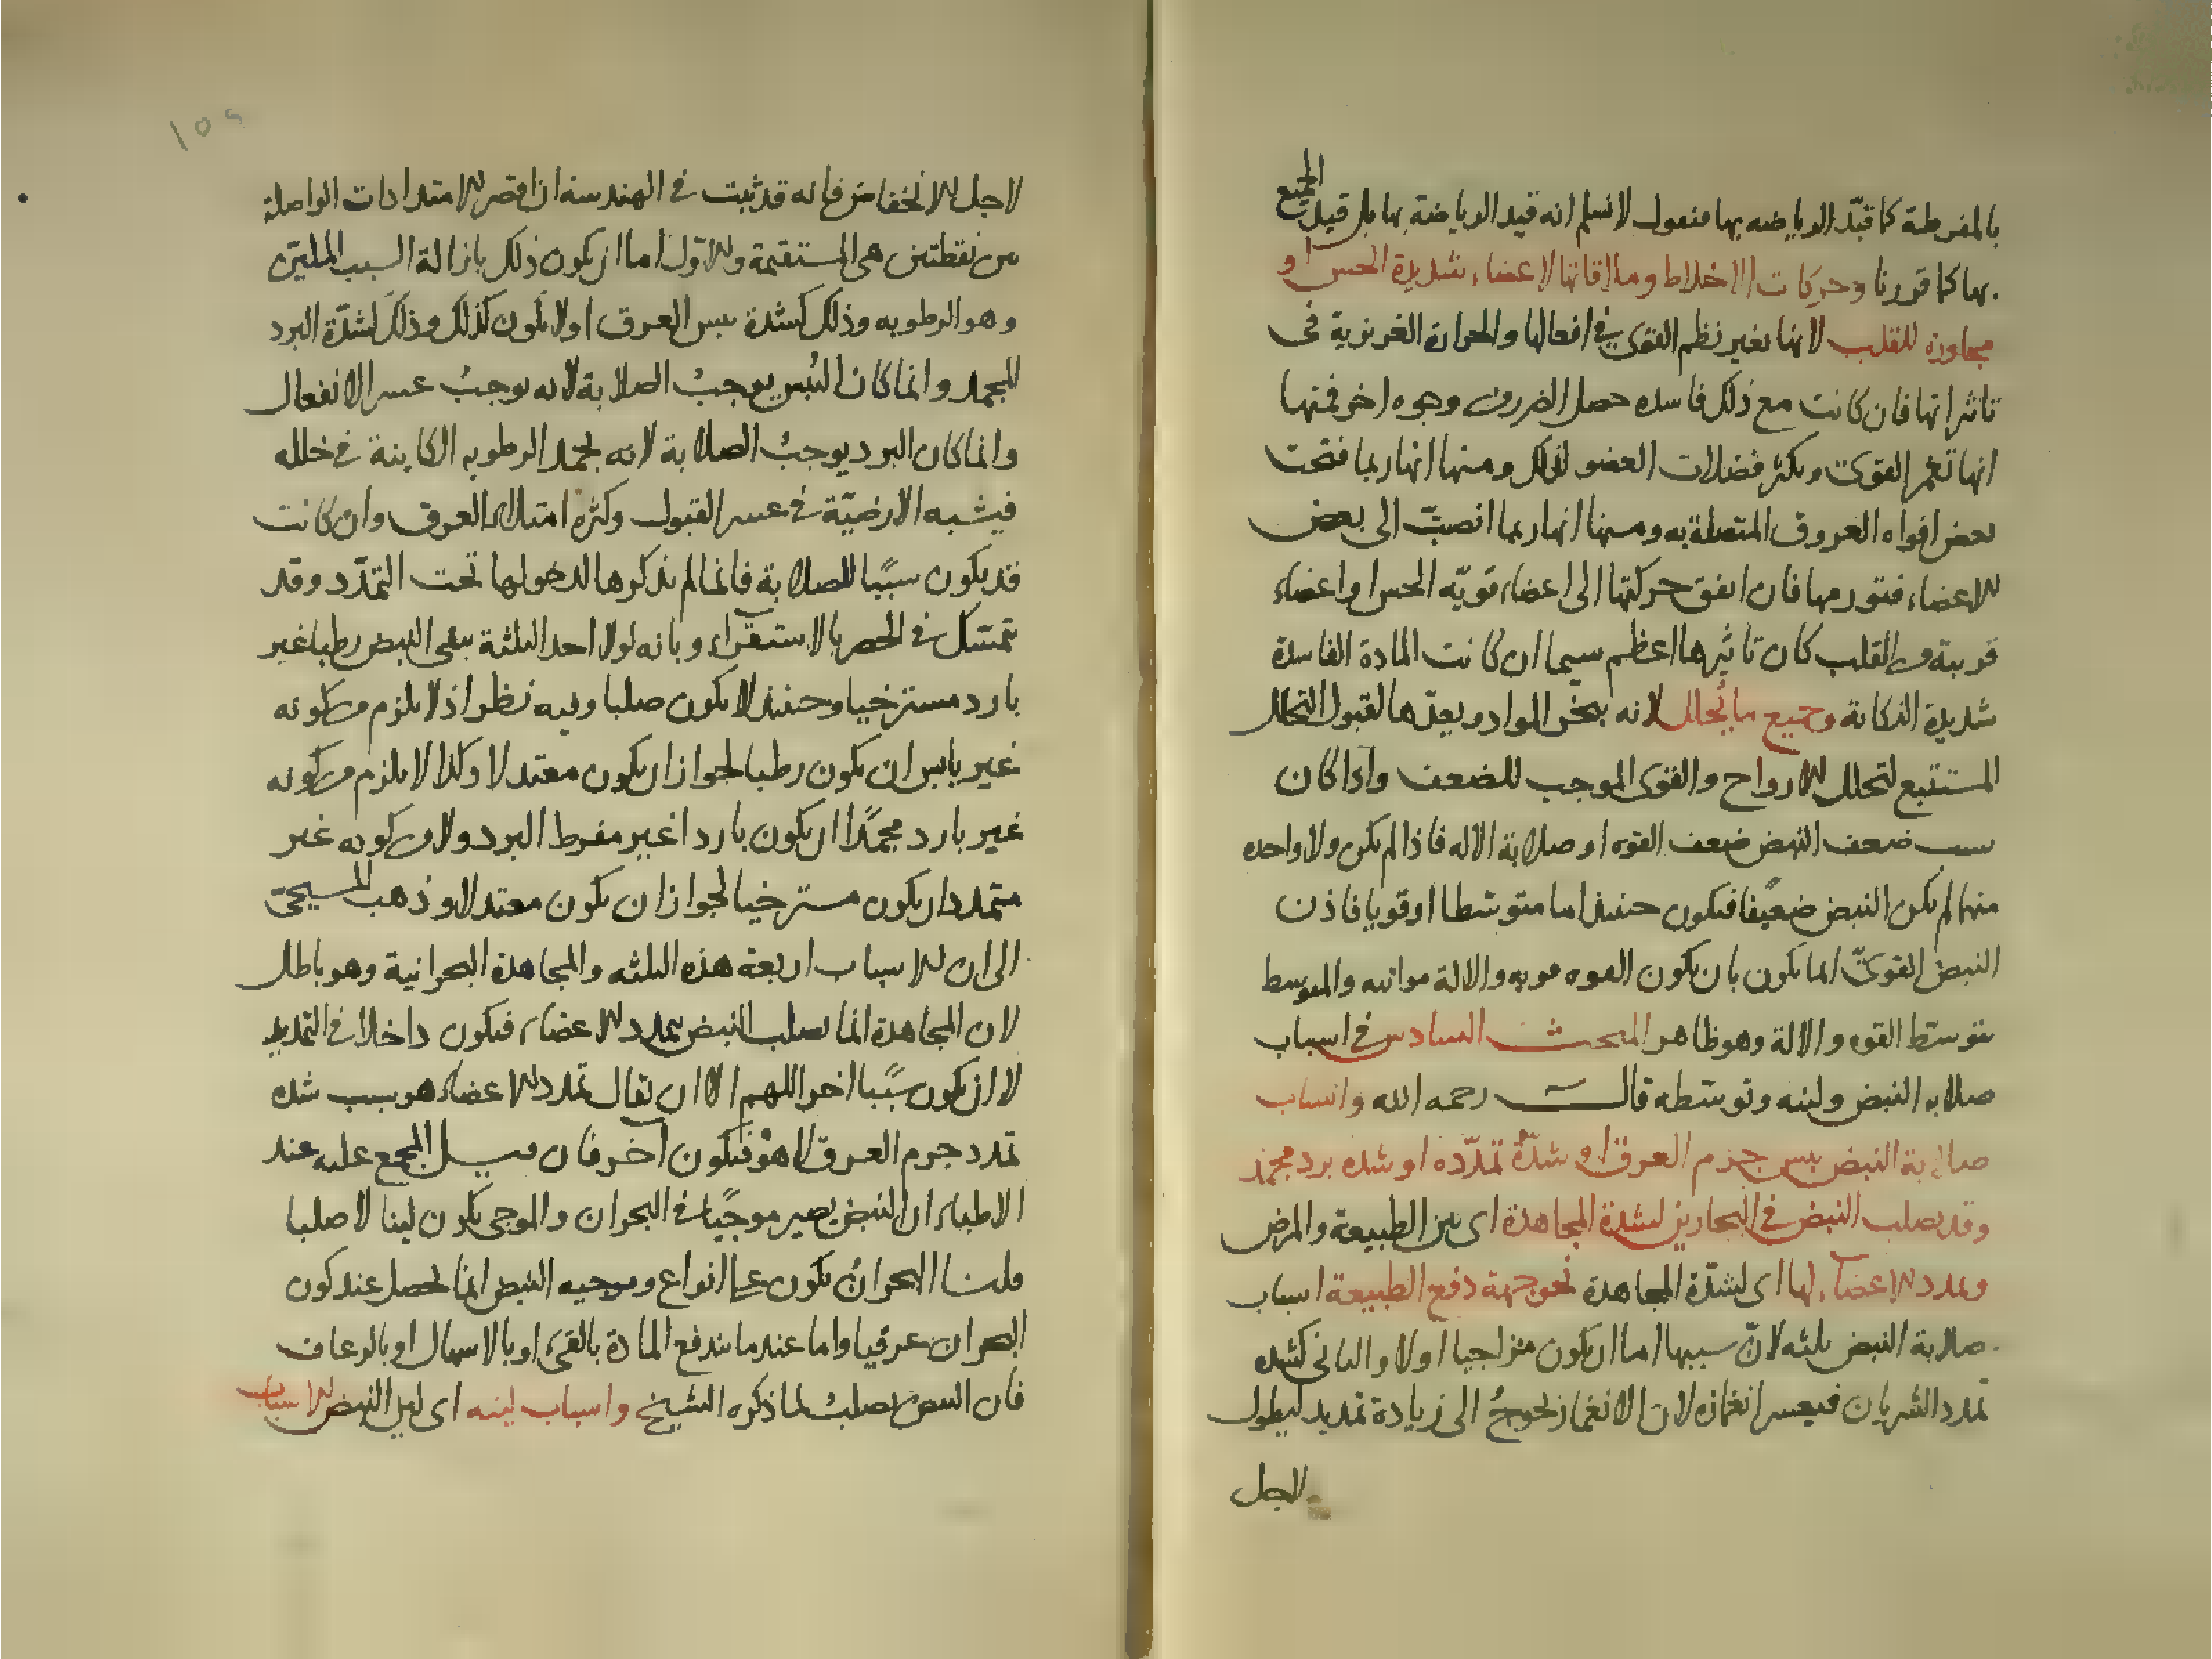 بالمفرطة كما قيّد الرياضه بها فنقول لا نسلم انه قيد الرياضة بها بل قيد الجميع
بها كما قررنا وحركات الاخلاط وملاقاتها لاعضاء شديدة الحس او
مجاورة للقلب لانها تغير نظم القوى في افعالها والحرارة الغريزية في
تاثيراتها فان كانت مع ذلك فاسده حصل الضرر من وجوه اخر فمنها
انها تغمر القوى وتكثر فضلات العضو لذلك ومنها انها ربما فتحت
بعض افواه العروق المتصلة به ومنها انها ربما انصبّ الى بعض
الاعضاء فتورمها فان اتفق حركتها الى اعضاء قويّه الحس او اعضاء
قريبة من القلب كان تاثيرها اعظم سيما ان كانت المادة الفاسدة
شديدة النكاية وجميع ما يُحلل لانه يبخر المواد ويعدّها لقبول التحلل
المستتبع لتحلل الارواح والقوى الموجب للضعف واذا كان
سبب ضعف النبض ضعف القوه او صلابة الاله فاذا لم يكن ولا واحده
منهما لم يكن النبض ضعيفا فيكون حينئذ اما متوسطا او قويا فاذن
النبض القويّ انما يكون بان يكون القوه قويه والالة مواتيه والمتوسط
بتوسط القوه والالة وهو ظاهر المبحث السادس في اسباب
صلابه النبض ولينه وتوسطه قال رحمه الله واسباب
صلابة النبض يبس جرم العرق او شدّة تمدّده او شده برد مجمد
وقد يصلب النبض في البحارين لشدة المجاهدة اى بين الطبيعة والمرض
وتمدد الاعضاء لها اى لشدّة المجاهدة نحو جهة دفع الطبيعة اسباب
صلابة النبض ثلثه لانّ سببها اما ان يكون مزاجيا او لا والثانى كشده
تمدد الشريان فيعسر انغمازه لان الانغماز يحوجُ الى زيادة تمديد ليطول
لاجل
لاجل الانخفاض فانه قد ثبت في الهندسة ان اقصر الامتدادات الواصلة
بين نقطتين هى المستقيمة والاوّل اما ان يكون ذلك بازالة السبب المليّن
وهو الرطوبه وذلك كشدة يبس العرق او لا يكون كذلك وذلك لشدّة البرد
المجمد وانما كان اليُبس يوجبُ الصلابة لانه يوجبُ عسر الانفعال
وانما كان البرد يوجبُ الصلابة لانه يجمد الرطوبه الكاينة في خلله
فيشبه الارضيّة في عسر القبول وكثرة امتلاء العرق وان كانت
قد يكون سببًا للصلابة فانما لم يذكرها لدخولها تحت التمدّد وقد
تمسّك في الحصر بالاستقراء وبانه لولا احد الثلثة بقى النبض رطبا غير
بارد مسترخيا وحينئذ لا يكون صلبا وفيه نظر اذ لا يلزم من كونه
غير يابس ان يكون رطبا لجواز ان يكون معتدلا وكذا لا يلزم من كونه
غير بارد مجمدًا ان يكون باردا غير مفرط البرد ولا من كونه غير
متمدد ان يكون مسترخيا لجواز ان يكون معتدلا وذهب المسيحى
الى ان الاسباب اربعة هذه الثلثه والمجاهدة البحرانية وهو باطل
لان المجاهدة انما تصلب النبض بتمدد الاعضاء فيكون داخلا في التمديد
لا ان يكون سببًا اخر اللهم الا ان يقال تمدد الاعضاء هو سبب شده
تمدد جرم العرق لا هو فيكون آخر فان قيل المجمع عليه عند
الاطباء ان النبض يصير موجيًا في البحران والموجى يكون لينا لا صلبا
قلنا البحرانُ يكون على انواع وموجيه النبض انما تحصل عند كون
البحران عرقيا واما عندما تندفع المادة بالقىء او بالاسهال او بالرعاف
فان النبض يصلبُ لما ذكره الشيخ واسباب لينه اى لين النبض الاسباب